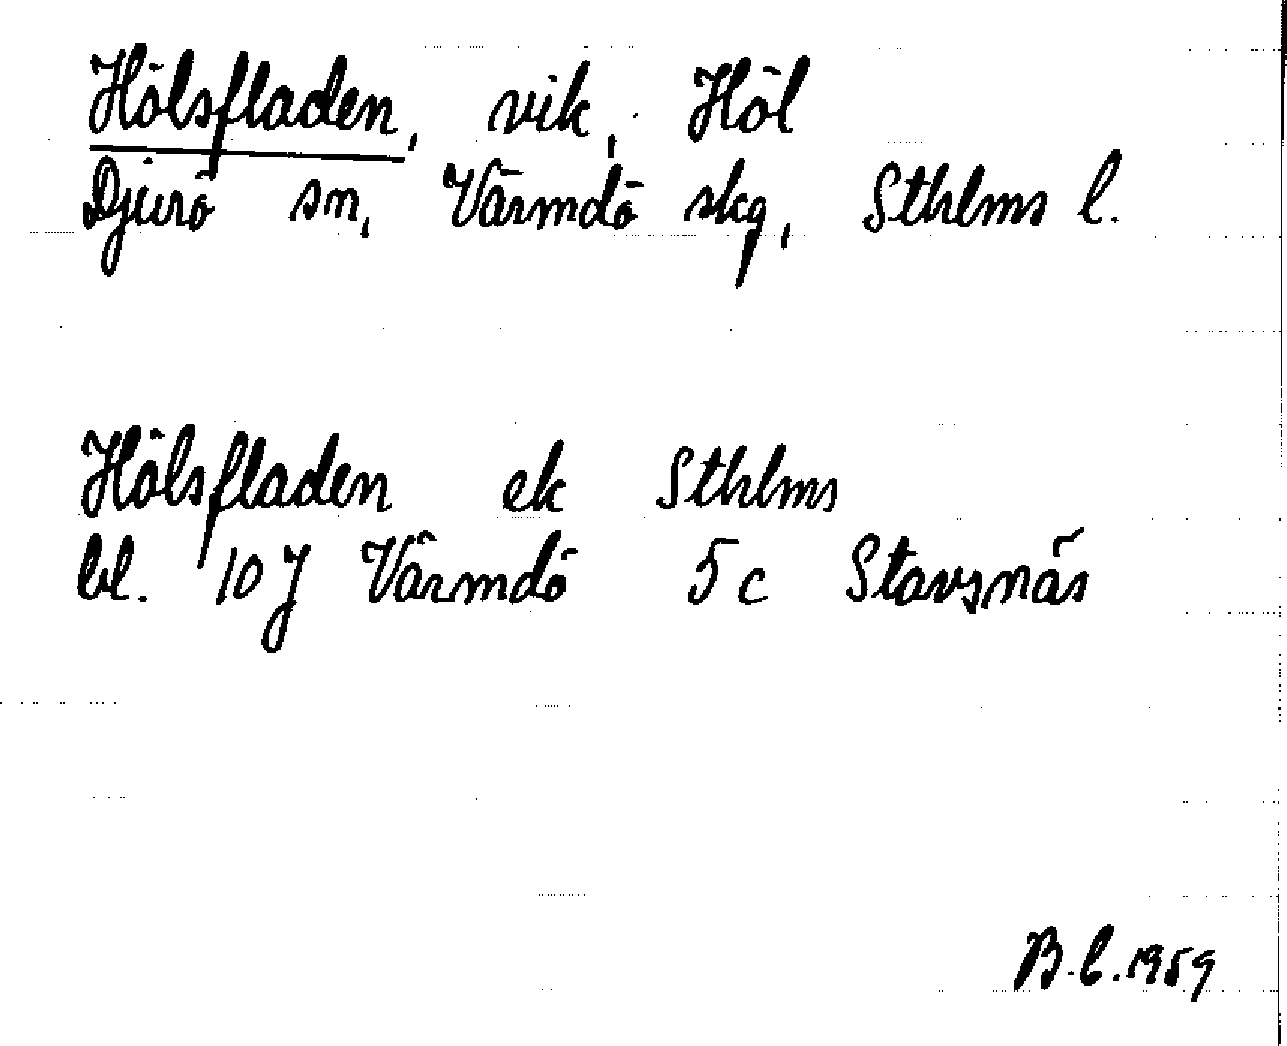 Hölsfladen, vik, Höl
Djurö sn, Värmdö skg, Sthlms l.
Hölsfladen ek Sthlms
bl. 10 J Värmdö 5 c Stavsnäs
B.L. 1959